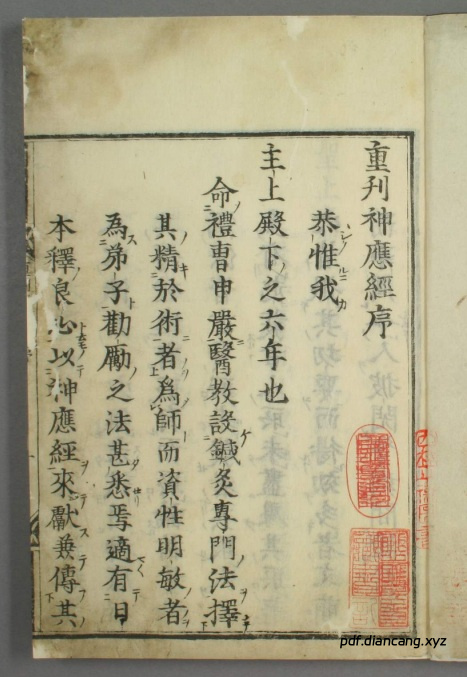 重刊神應經序
恭惟我
主上殿下之六年也
命禮曹申嚴醫教設鍼灸專門法擇
其精於術者爲師而資性明敏者
爲弟子勸勵之法甚悉焉適有日
本釋良心以神應經來獻兼傳其
pdf.diancang.xyz